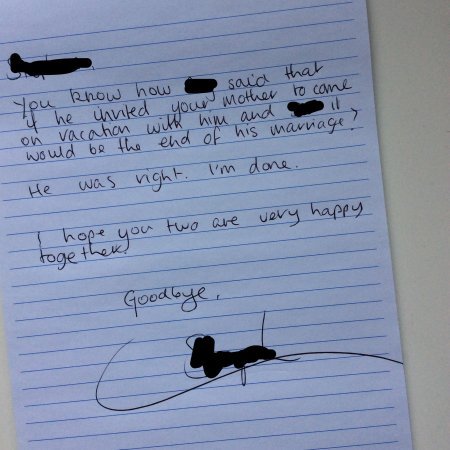 You know how said that
if he invited your mother to come
on vacation with him and it
would be the end of his marriage?
He was right. I'm done.
I hope you two are very happy
together.
Goodbye,